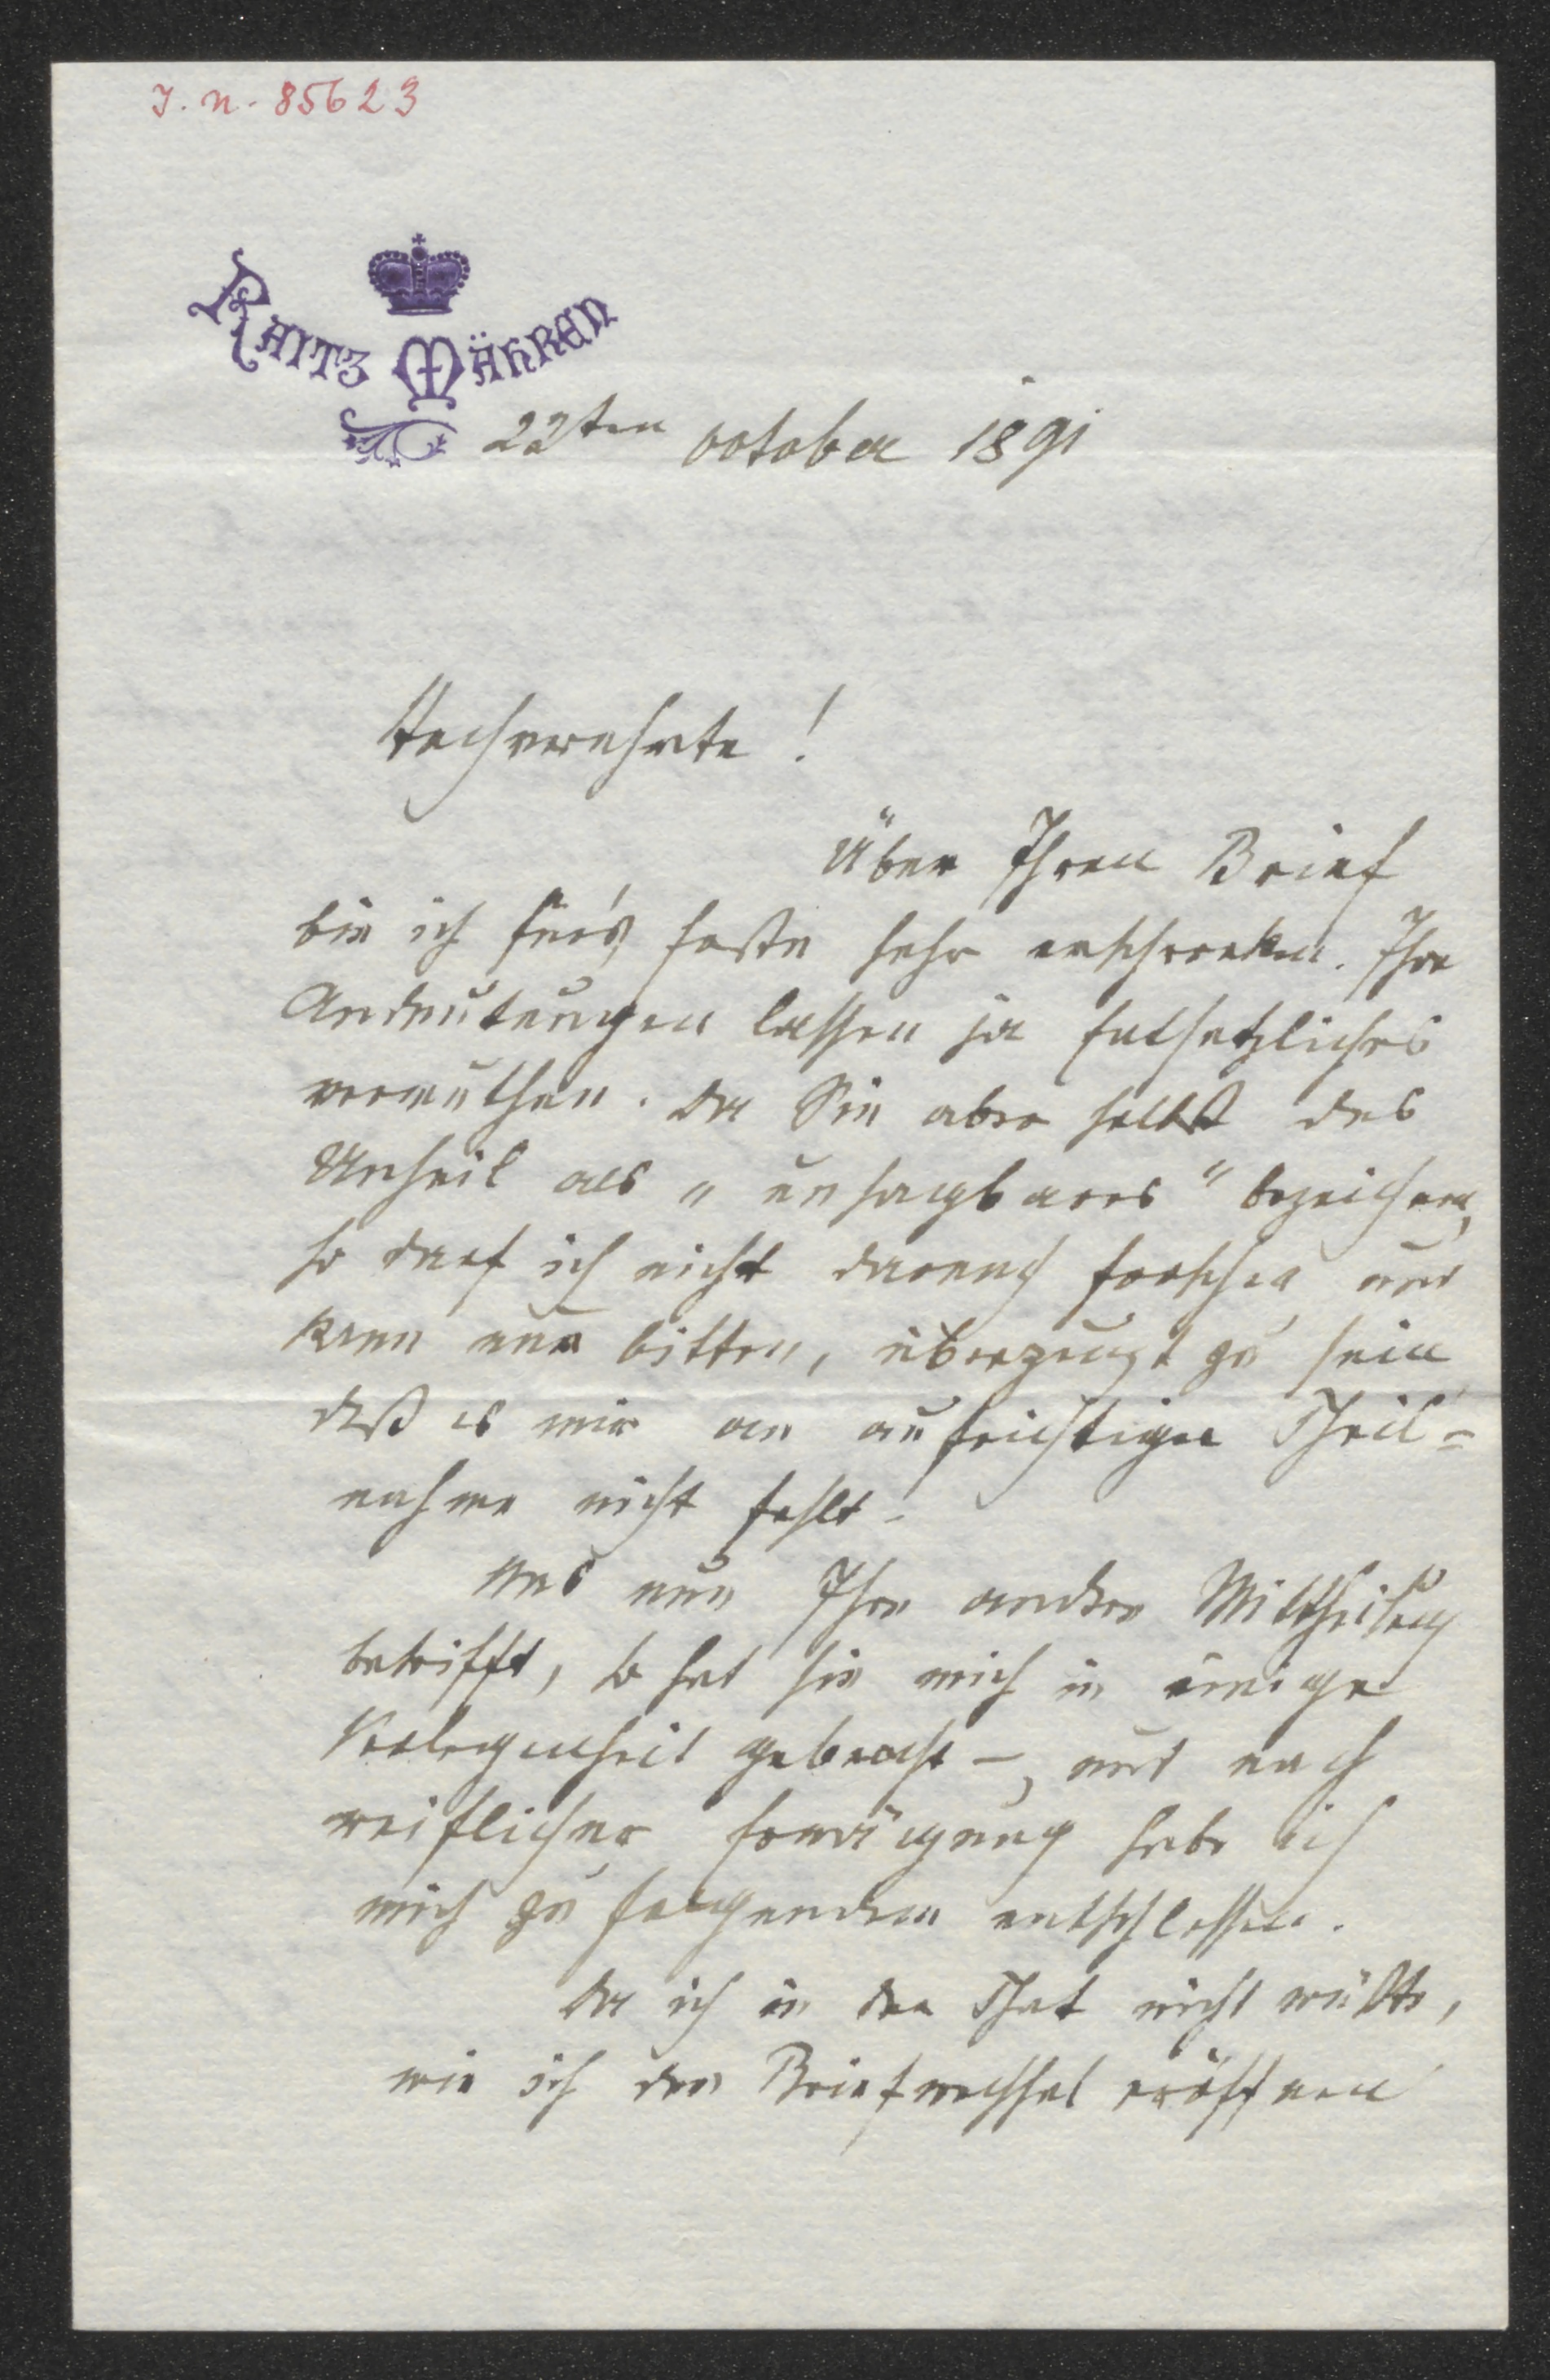 I. N. 85623
RAITZ MÄHREN
22ten October 1891
Hochverehrte!
Über Ihren Brief
bin ich für's Erste sehr erschrocken. Ihre
Andeutungen lassen ja Entsetzliches
vermuthen. Da Sie aber selbst das
Unheil als „unsagbares" bezeichnen,
so darf ich nicht darnach forschen und
kann nur bitten, überzeugt zu sein
daß es mir an aufrichtiger Theil-
nahme nicht fehlt!
Was nun Ihre andere Mittheilung
betrifft, so hat sie mich in einige
Verlegenheit gebracht –, und nach
reiflicher Erwägung habe ich
mich zu folgendem entschlossen.
Da ich in der That nicht wüßte,
wie ich den Briefwechsel eröffnen